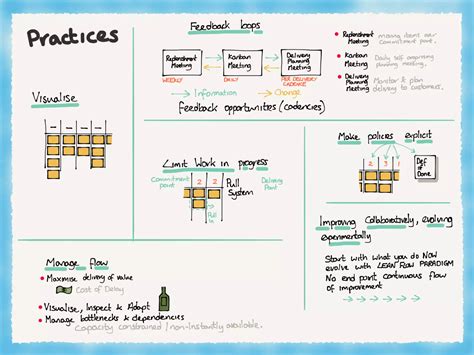 Practices
Visualise
Feedback loops
Replenishment
Meeting
Kanban
Meeting
Delivery
Planning
Meeting
WEEKLY
DAILY
PER DELIVERY
CADENCE
Information
Change
Feedback opportunities (cadencies)
Replenishment
Meeting
moving items over
commitment point.
Kanban
Meeting
Daily self organising
planning meeting.
Delivery
Planning
Meeting
Monitor & plan
delivery to customers.
Limit Work in progress
Commitment
point
Delivery
Point
2 2
Pull
System
Pull
In
Make policies explicit
2 3 1
Def
of
Done
Improving Collaboratively, evolving
experimentally
Start with what you do NOW
evolve with LEAN FLOW PARADIGM
No end point continuous flow
of improvement
Manage flow
Maximise delivery of value
Cost of Delay
Visualise, Inspect & Adapt
Manage bottlenecks & dependencies
Capacity constrained / non-instantly available.